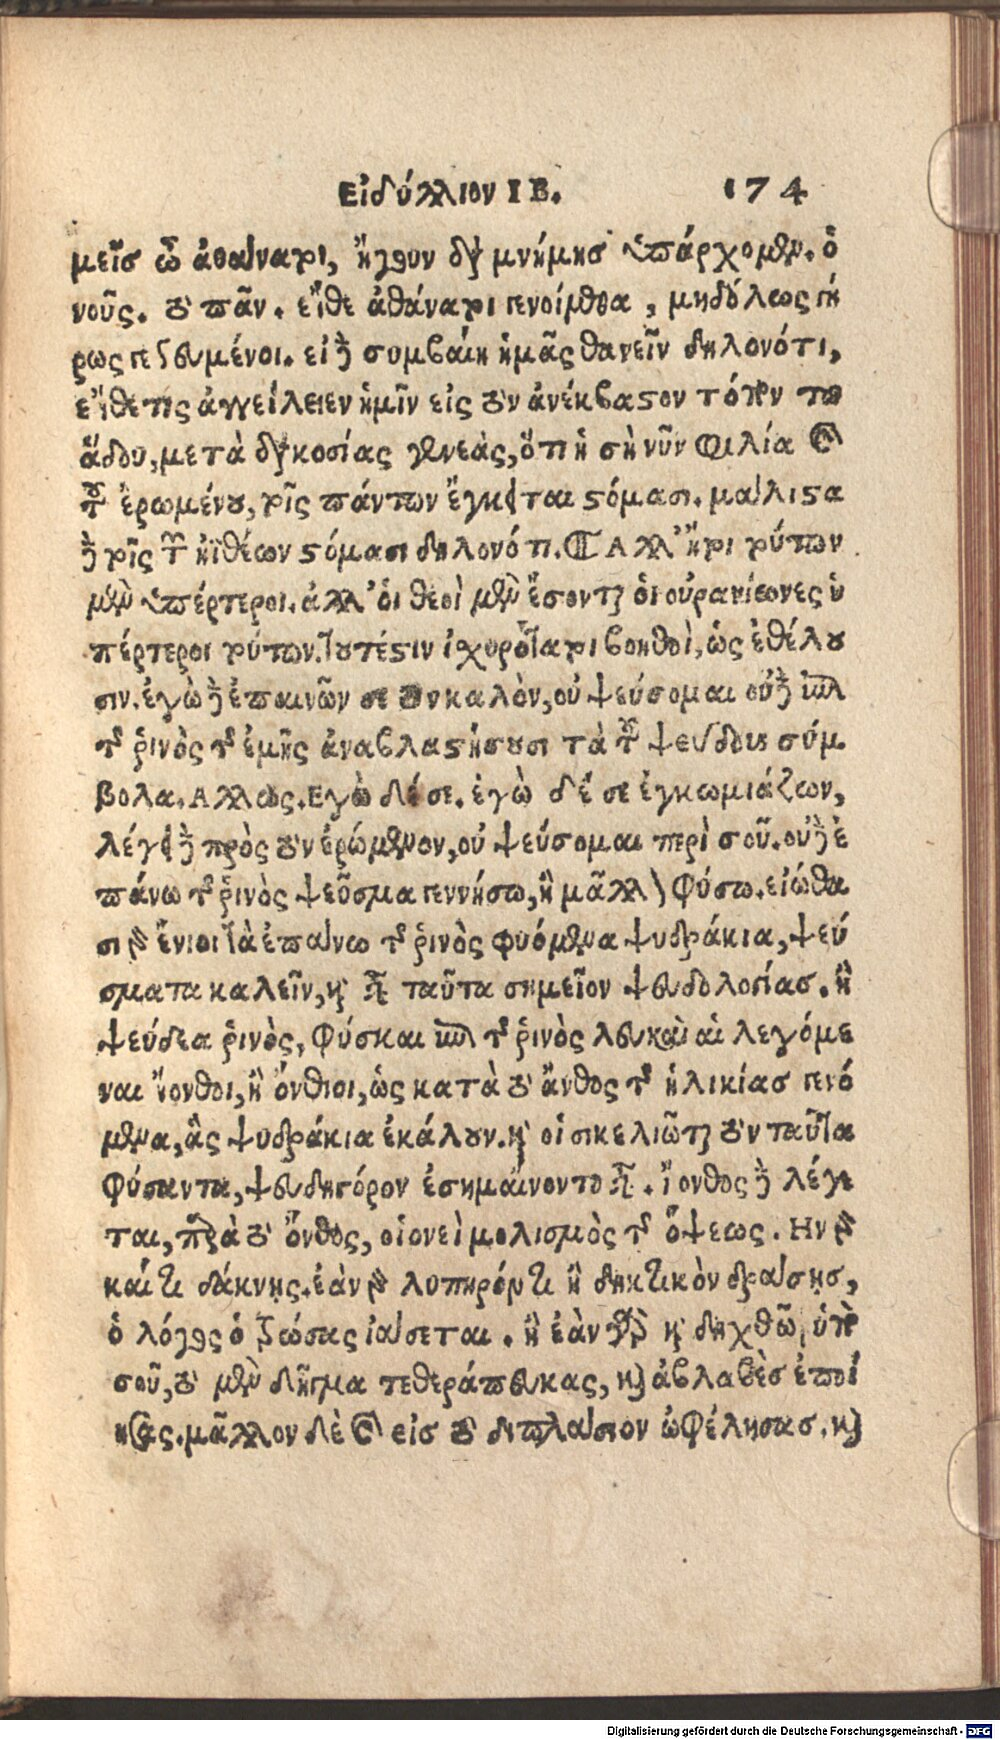 Εἰδύλλιον ΙΒ. 174
μεῖς ὦ ἀθάνατοι, ἤγουν διὰ μνήμης ὑπάρχομεν. ὁ
νοῦς. τὸ πᾶν. εἴθε ἀθάνατοι γενοίμεθα, μηδόλως γή
ρως γευσάμενοι. εἰ δὲ συμβαίη ἡμᾶς θανεῖν δηλονότι,
εἴθε τις ἀγγείλειεν ἡμῖν εἰς τὸν ἀνέκβατον τόπον τοῦ
ᾅδου, μετὰ διακοσίας γενεὰς, ὅτι ἡ σὴ νῦν φιλία καὶ
τοῦ ἐρωμένου, τοῖς πάντων ἔγκειται στόμασι. μάλιστα
δὲ τοῖς τῶν ἠϊθέων στόμασι δηλονότι. Ἀλλ' ἤτοι τούτων
μὲν ὑπέρτεροι. ἀλλ' οἱ θεοὶ μὲν ἔσονται οἱ οὐρανίωνες ὑ
πέρτεροι τούτων. τουτέστιν ἰσχυρότατοι βοηθοὶ, ὡς ἐθέλου
σιν. ἐγὼ δὲ ἐπαινῶν σε τὸν καλὸν, οὐ ψεύσομαι οὐδὲ ἐπὶ
τῆς ῥινὸς τῆς ἐμῆς ἀναβλαστήσουσι τὰ τοῦ ψεύδους σύμ
βολα. Ἄλλως. Ἐγὼ δέ σε. ἐγὼ δέ σε ἐγκωμιάζων,
λέγει δὲ πρὸς τὸν ἐρώμενον, οὐ ψεύσομαι περὶ σοῦ. οὐδὲ ἐ
πάνω τῆς ῥινὸς ψεῦσμα γεννήσω, ἢ μᾶλλον φύσω. εἰώθα
σι γὰρ ἔνιοι τὰ ἐπάνω τῆς ῥινὸς φυόμενα ψυδράκια, ψεύ
σματα καλεῖν, καὶ εἶναι ταῦτα σημεῖον ψευδολογίας. ἢ
ψεύδεα ῥινὸς, φύσκαι ἐπὶ τῆς ῥινὸς λευκαὶ αἱ λεγόμε
ναι ἴονθοι, ἢ ὄνθιοι, ὡς κατὰ τὸ ἄνθος τῆς ἡλικίας γενό
μενα, ἃς ψυδράκια ἐκάλουν. καὶ οἱ σικελιῶται τὸν ταῦτα
φύσαντα, ψευδηγόρον ἐσημαίνοντο εἶναι. ἴονθος δὲ λέγε
ται, παρὰ τὸ ὄνθος, οἱονεὶ μολισμὸς τῆς ὄψεως. Ην γὰρ
καί τι δάκνῃς. ἐὰν γὰρ λυπηρόν τι ἢ δηκτικὸν δράσῃς,
ὁ λόγος ὁ τρώσας ἰάσεται. ἢ ἐὰν γὰρ καὶ δηχθῶ ὑπὸ
σοῦ, τὸ μὲν δῆγμα τεθεράπευκας, καὶ ἀβλαβὲς ἐποί
ησας. μᾶλλον δὲ καὶ εἰς τὸ διπλάσιον ὠφέλησας. καὶ
Digitalisierung gefördert durch die Deutsche Forschungsgemeinschaft - DFG